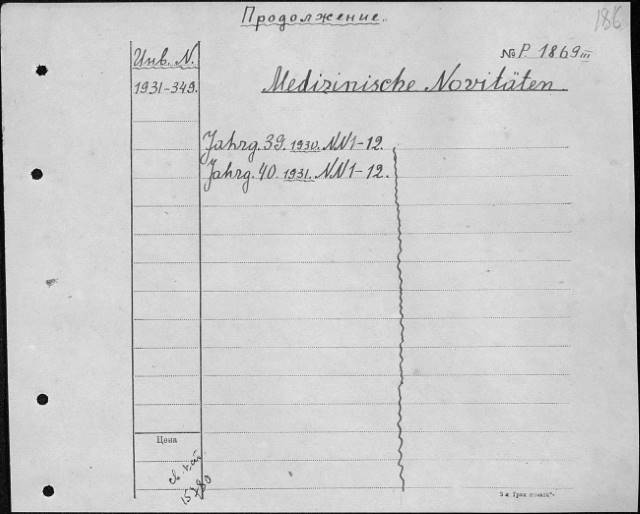 Продолжение.
186
Инв. N.
№ P. 1869 III
1931-349.
Medizinische Novitäten.
Jahrg. 39. 1930. NN1-12.
Jahrg. 40. 1931. NN1-12.
Цена
св. кат
15 х 80